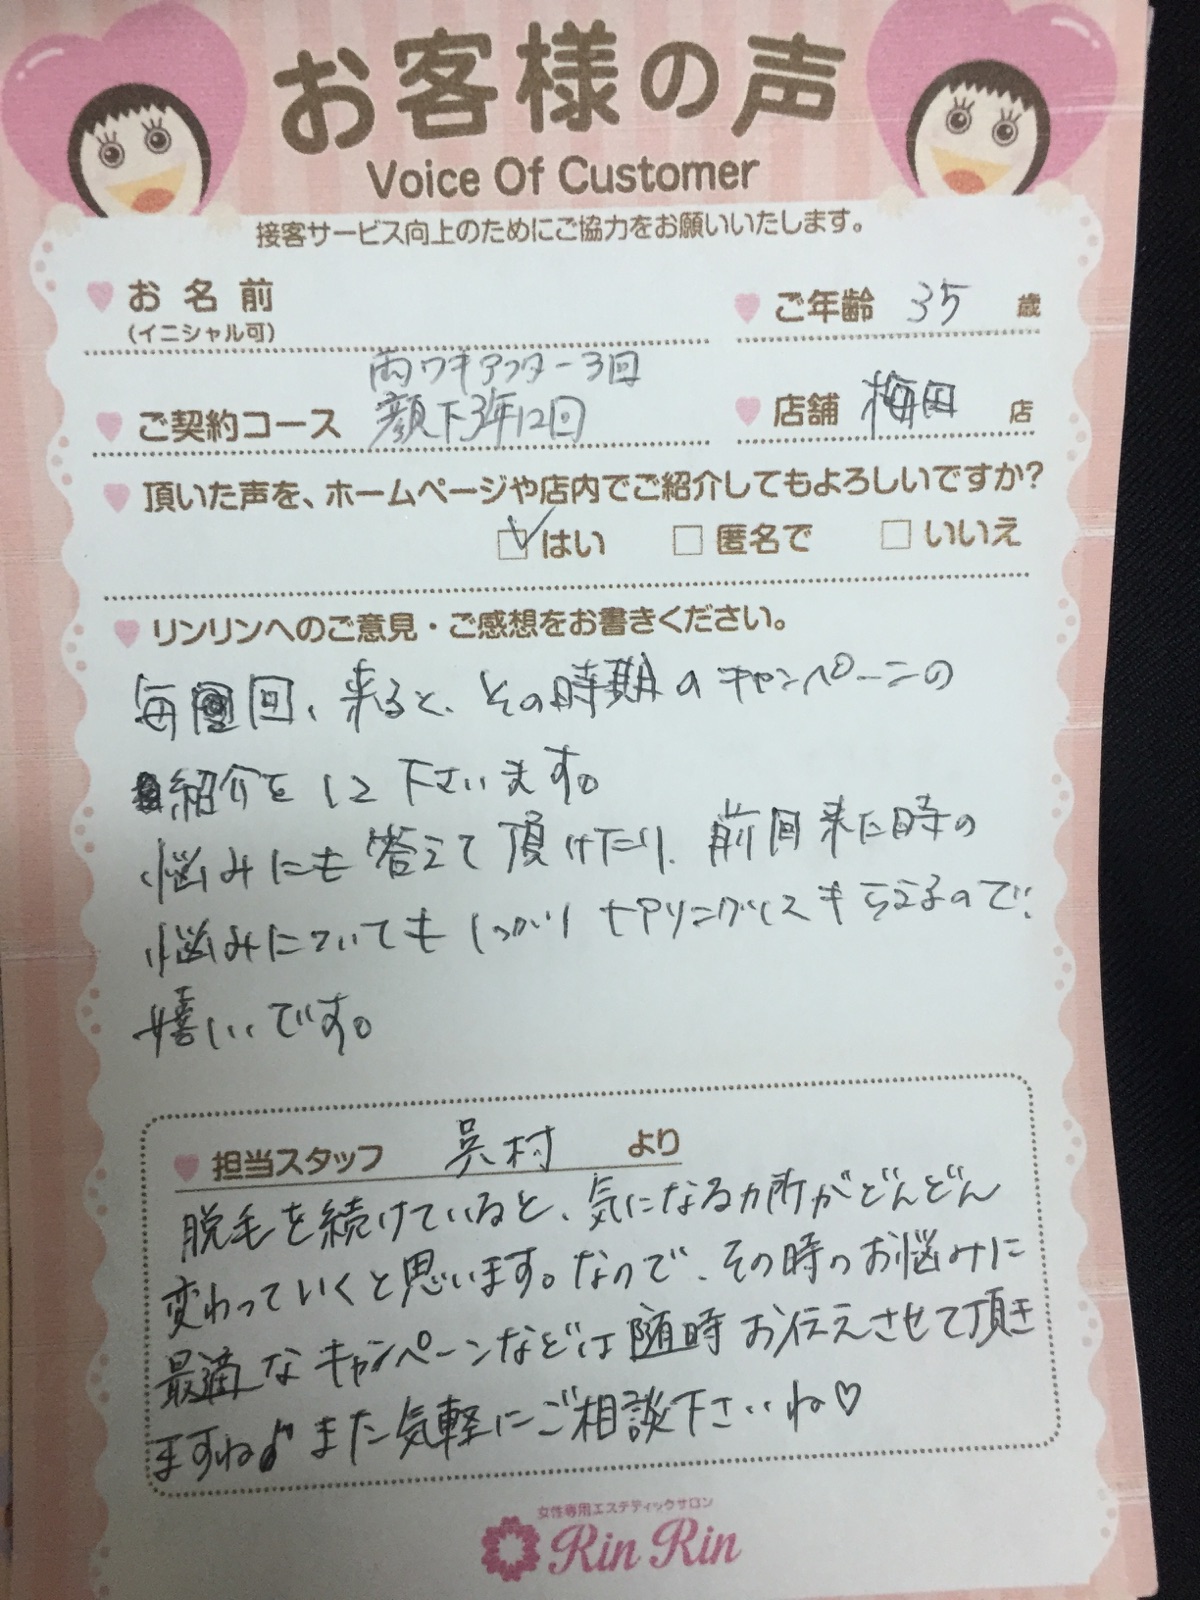 お客様の声
Voice Of Customer
接客サービス向上のためにご協力をお願いいたします。
お名前
(イニシャル可)
ご年齢 35 歳
両ワキアフター3回
ご契約コース 顔下3年12回
店舗 梅田 店
頂いた声を、ホームページや店内でご紹介してもよろしいですか?
はい 匿名で いいえ
リンリンへのご意見・ご感想をお書きください。
毎回、来ると、その時期のキャンペーンの
紹介をして下さいます。
悩みにも答えて頂けたり、前回来た時の
悩みについてもしっかりヒアリングしてもらえるので、
嬉しいです。
担当スタッフ 呉村 より
脱毛を続けていると、気になるカ所がどんどん
変わっていくと思います。なので、その時のお悩みに
最適なキャンペーンなどは随時お伝えさせて頂き
ますね♪また気軽にご相談下さいね♡
女性専用エステティックサロン
Rin Rin